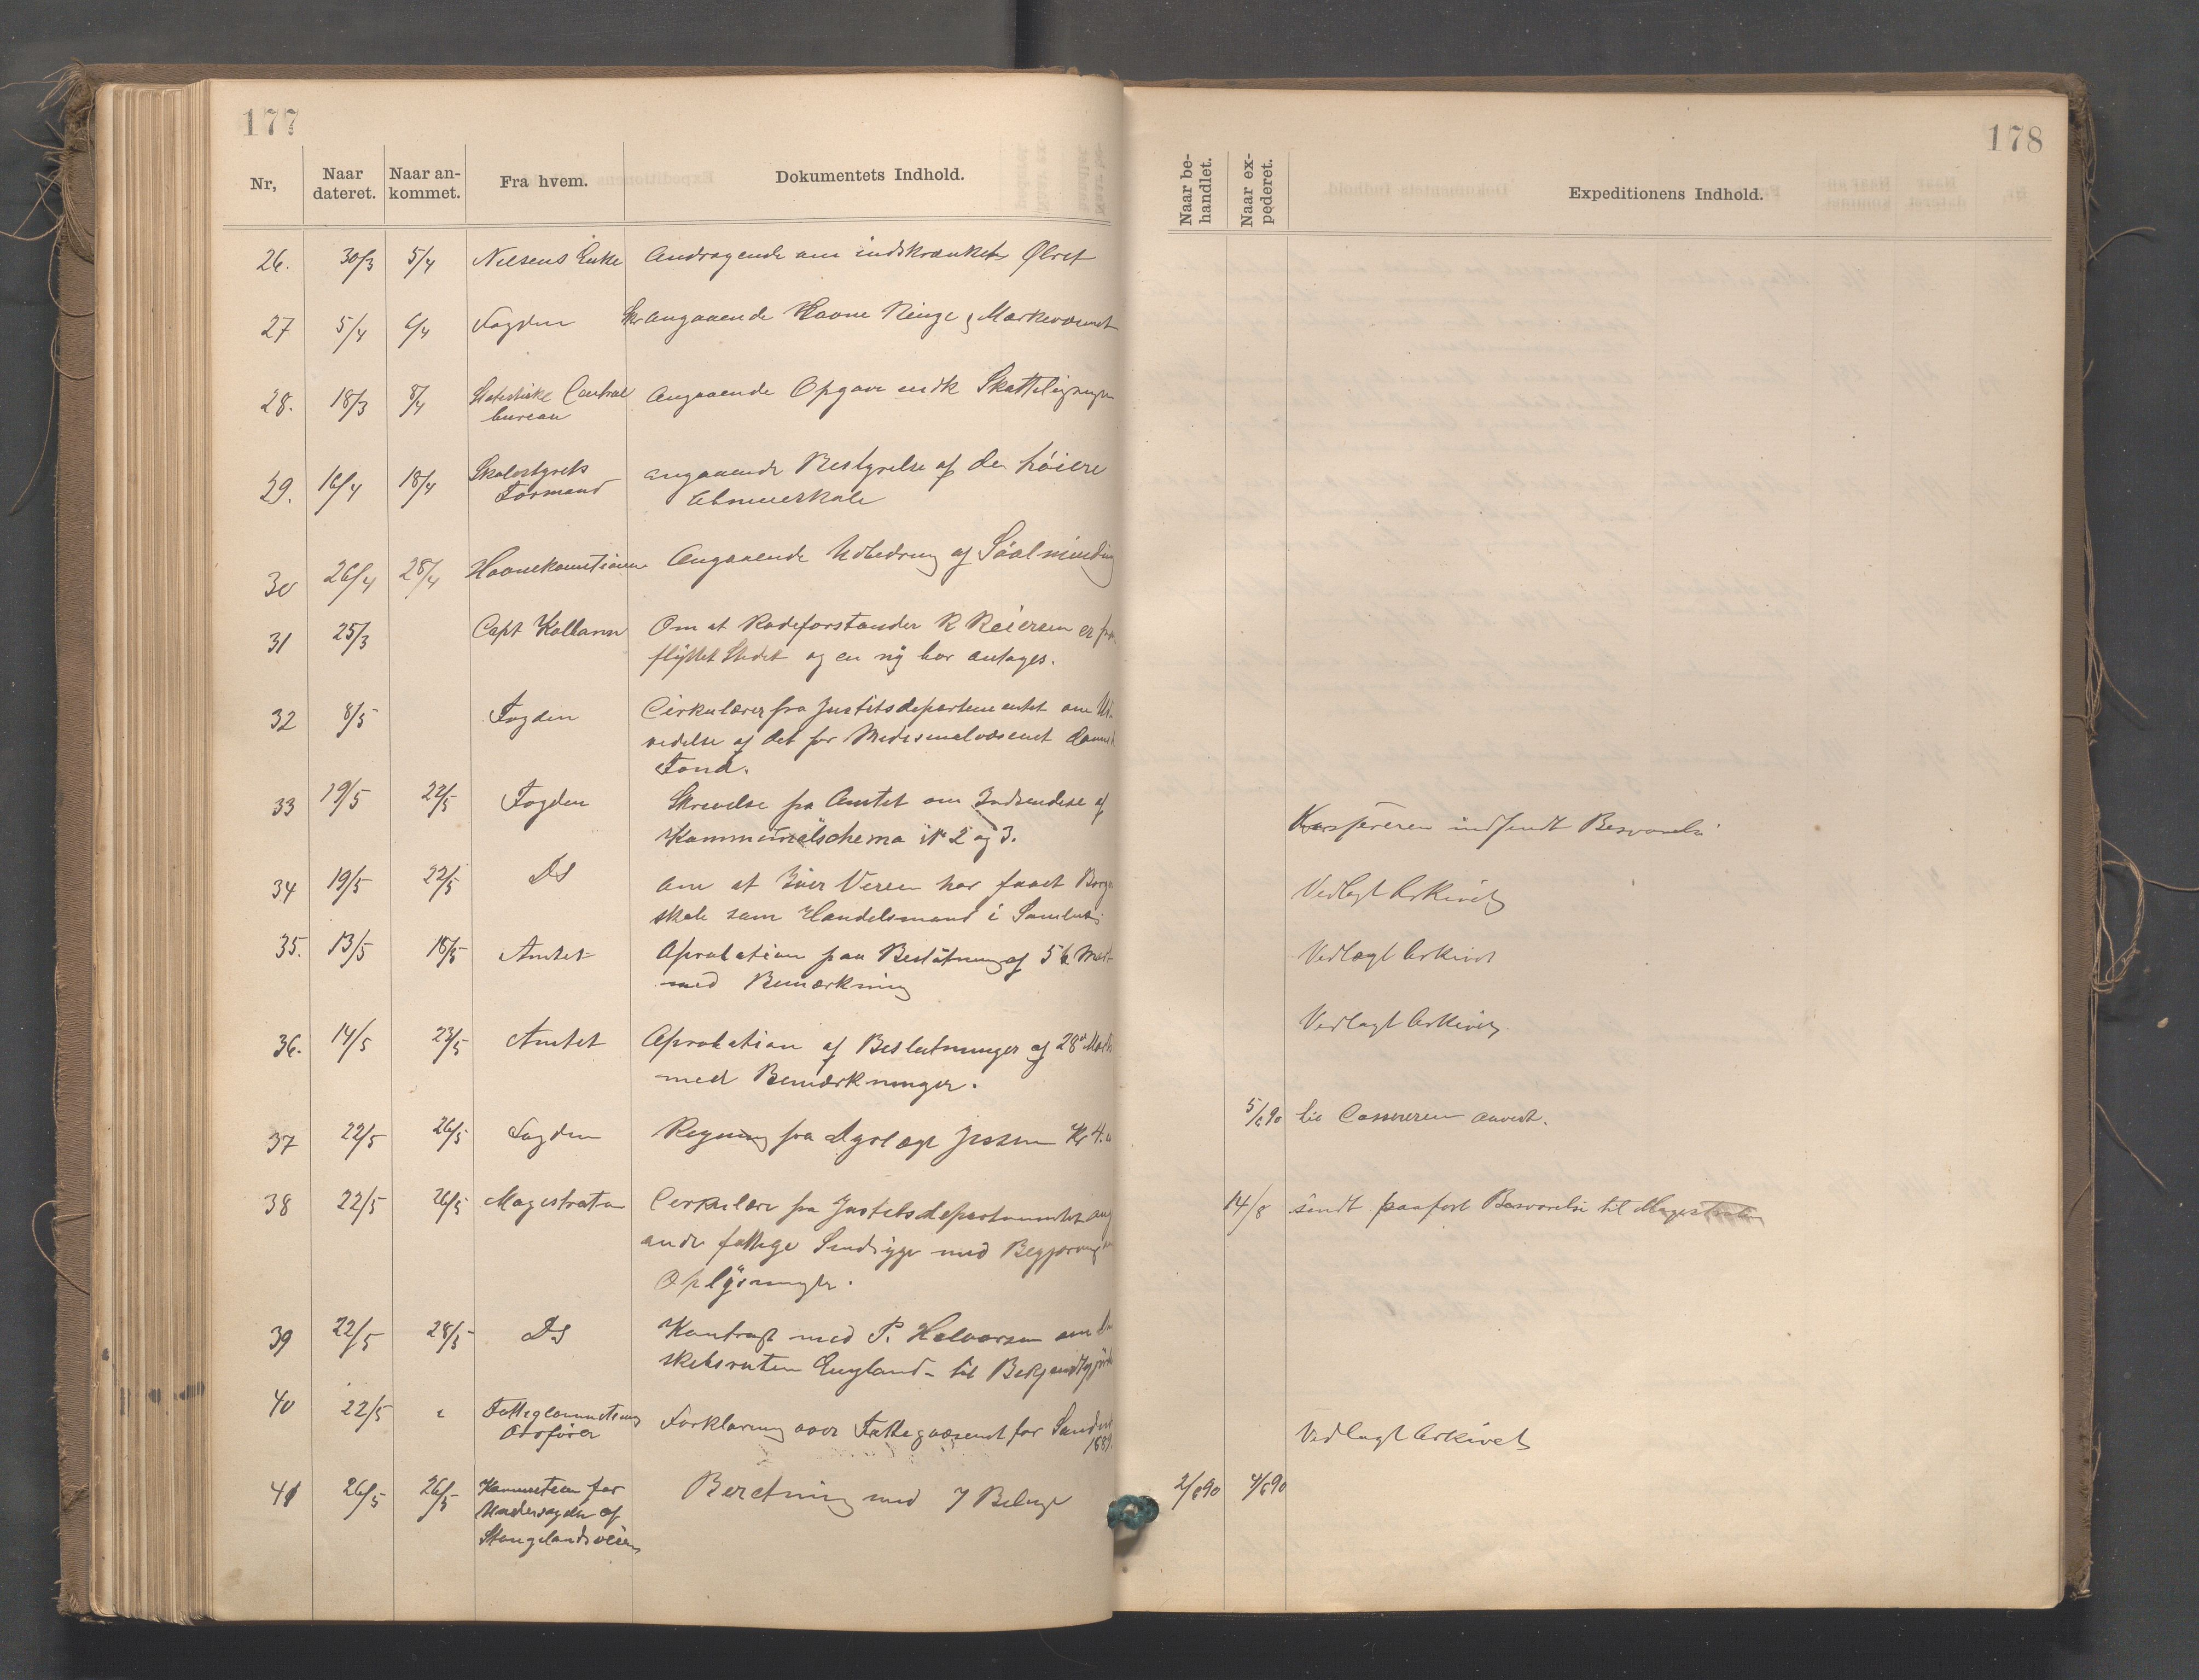 177
178
Nr, Naar dateret. Naar an-kommet. Fra hvem. Dokumentets Indhold. Naar be-handlet. Naar ex-pederet. Expeditionens Indhold.
26. 30/3 5/4 Nielsens Enke Andragende om indskrænket Ølret
27 5/4 6/4 Fogden Skr angaaende Havne Ringe & Mærkevæsenet
28. 18/3 8/4 Statistiske Central Angaaende Opgave Skatteligningen
bureau
29. 16/4 18/4 Skolestyrets angaaende Bestyrelse af den høiere
Formand Almueskole
30 26/4 28/4 Havnekomitionen Angaaende Udbedring af Søalminding
31 25/3 Capt Om at Rodeforstander R Reiersen er fra
flyttet Stedet og en ny bør antages.
32 8/5 Fogden Cirkulærer fra Justitsdepartementet om
af det for Medisinalvæsenet
Fond.
33 19/5 22/5 Fogden Skrivelse fra Amtet om Indsendelse af
Kommunalschema N 2 og 3. Kasséreren indsendt Besvarelse
34 19/5 22/5 DS om at Iver Veren har faaet Borger
skab som Handelsmand i Vedlagt Arkivet
35. 13/5 18/5 Amtet Aprobation paa Beslutning af 5te Marts
med Bemærkning Vedlagt Arkivet
36. 14/5 23/5 Amtet Aprobation af Beslutninger af 28de Marts Vedlagt Arkivet
med Bemærkninger.
37 22/5 26/5 Fogden Regning fra Dyrlæge Jessen Kr 4. 5/6 90 til Cassereren anvist.
38 22/5 26/5 Magistraten Cirkulære fra Justitsdepartementet ang 14/8 sendt paaført Besvarelse til Magistraten
ande fattige Sindsyge med Begjæring om
Oplysninger.
39 22/5 28/5 DS Kontrakt med P. Halvorsen om
England - til Bekjendtgjørelse
40 22/5 " Fattigcommetions Forklaring over Fattigvæsenet for 1889. Vedlagt Arkivet
Ordfører
41 26/5 26/5 Kommiteen for Beretning med 7 Bilage 2/6 90 4/6 90
Undersøgelse af
Stangelandsveien